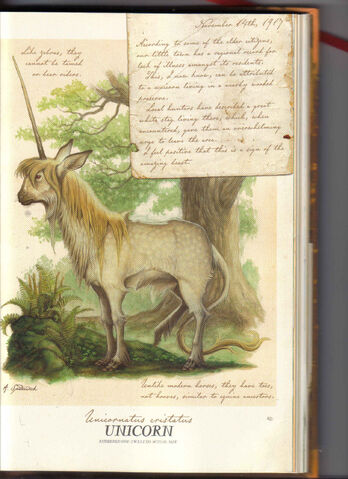 Like zebras, they
cannot be tamed
or bear riders.
November 14th, 1907
According to some of the elder citizens,
our little town has a regional record for
lack of illness amongst its residents.
This, I now know, can be attributed
to a unicorn living in a nearby wooded
preserve.
Local hunters have described a great
white stag living there, which, when
encountered, gave them an overwhelming
urge to leave the area.
I feel positive that this is a sign of the
amazing beast.
Unlike modern horses, they have toes,
not hooves, similar to equine ancestors.
Unicornatus cristatus
UNICORN